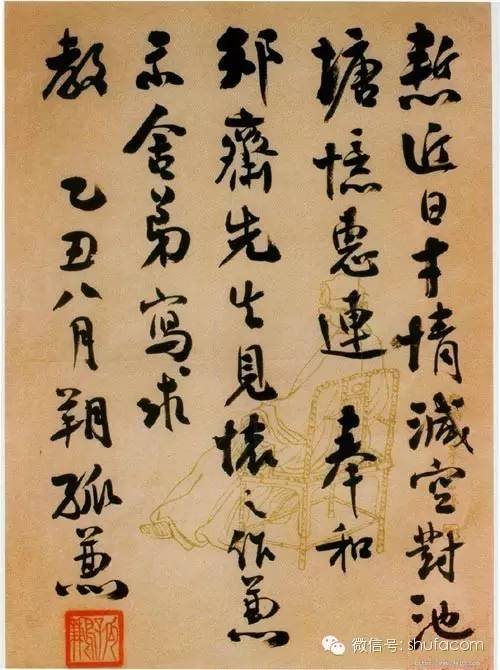 惭近日才情减空對池
塘憶惠連 奉和
邨齋先生見懷之作兼
示舍弟寫求
教 乙丑八月朔孤兼
微信号: shufacom